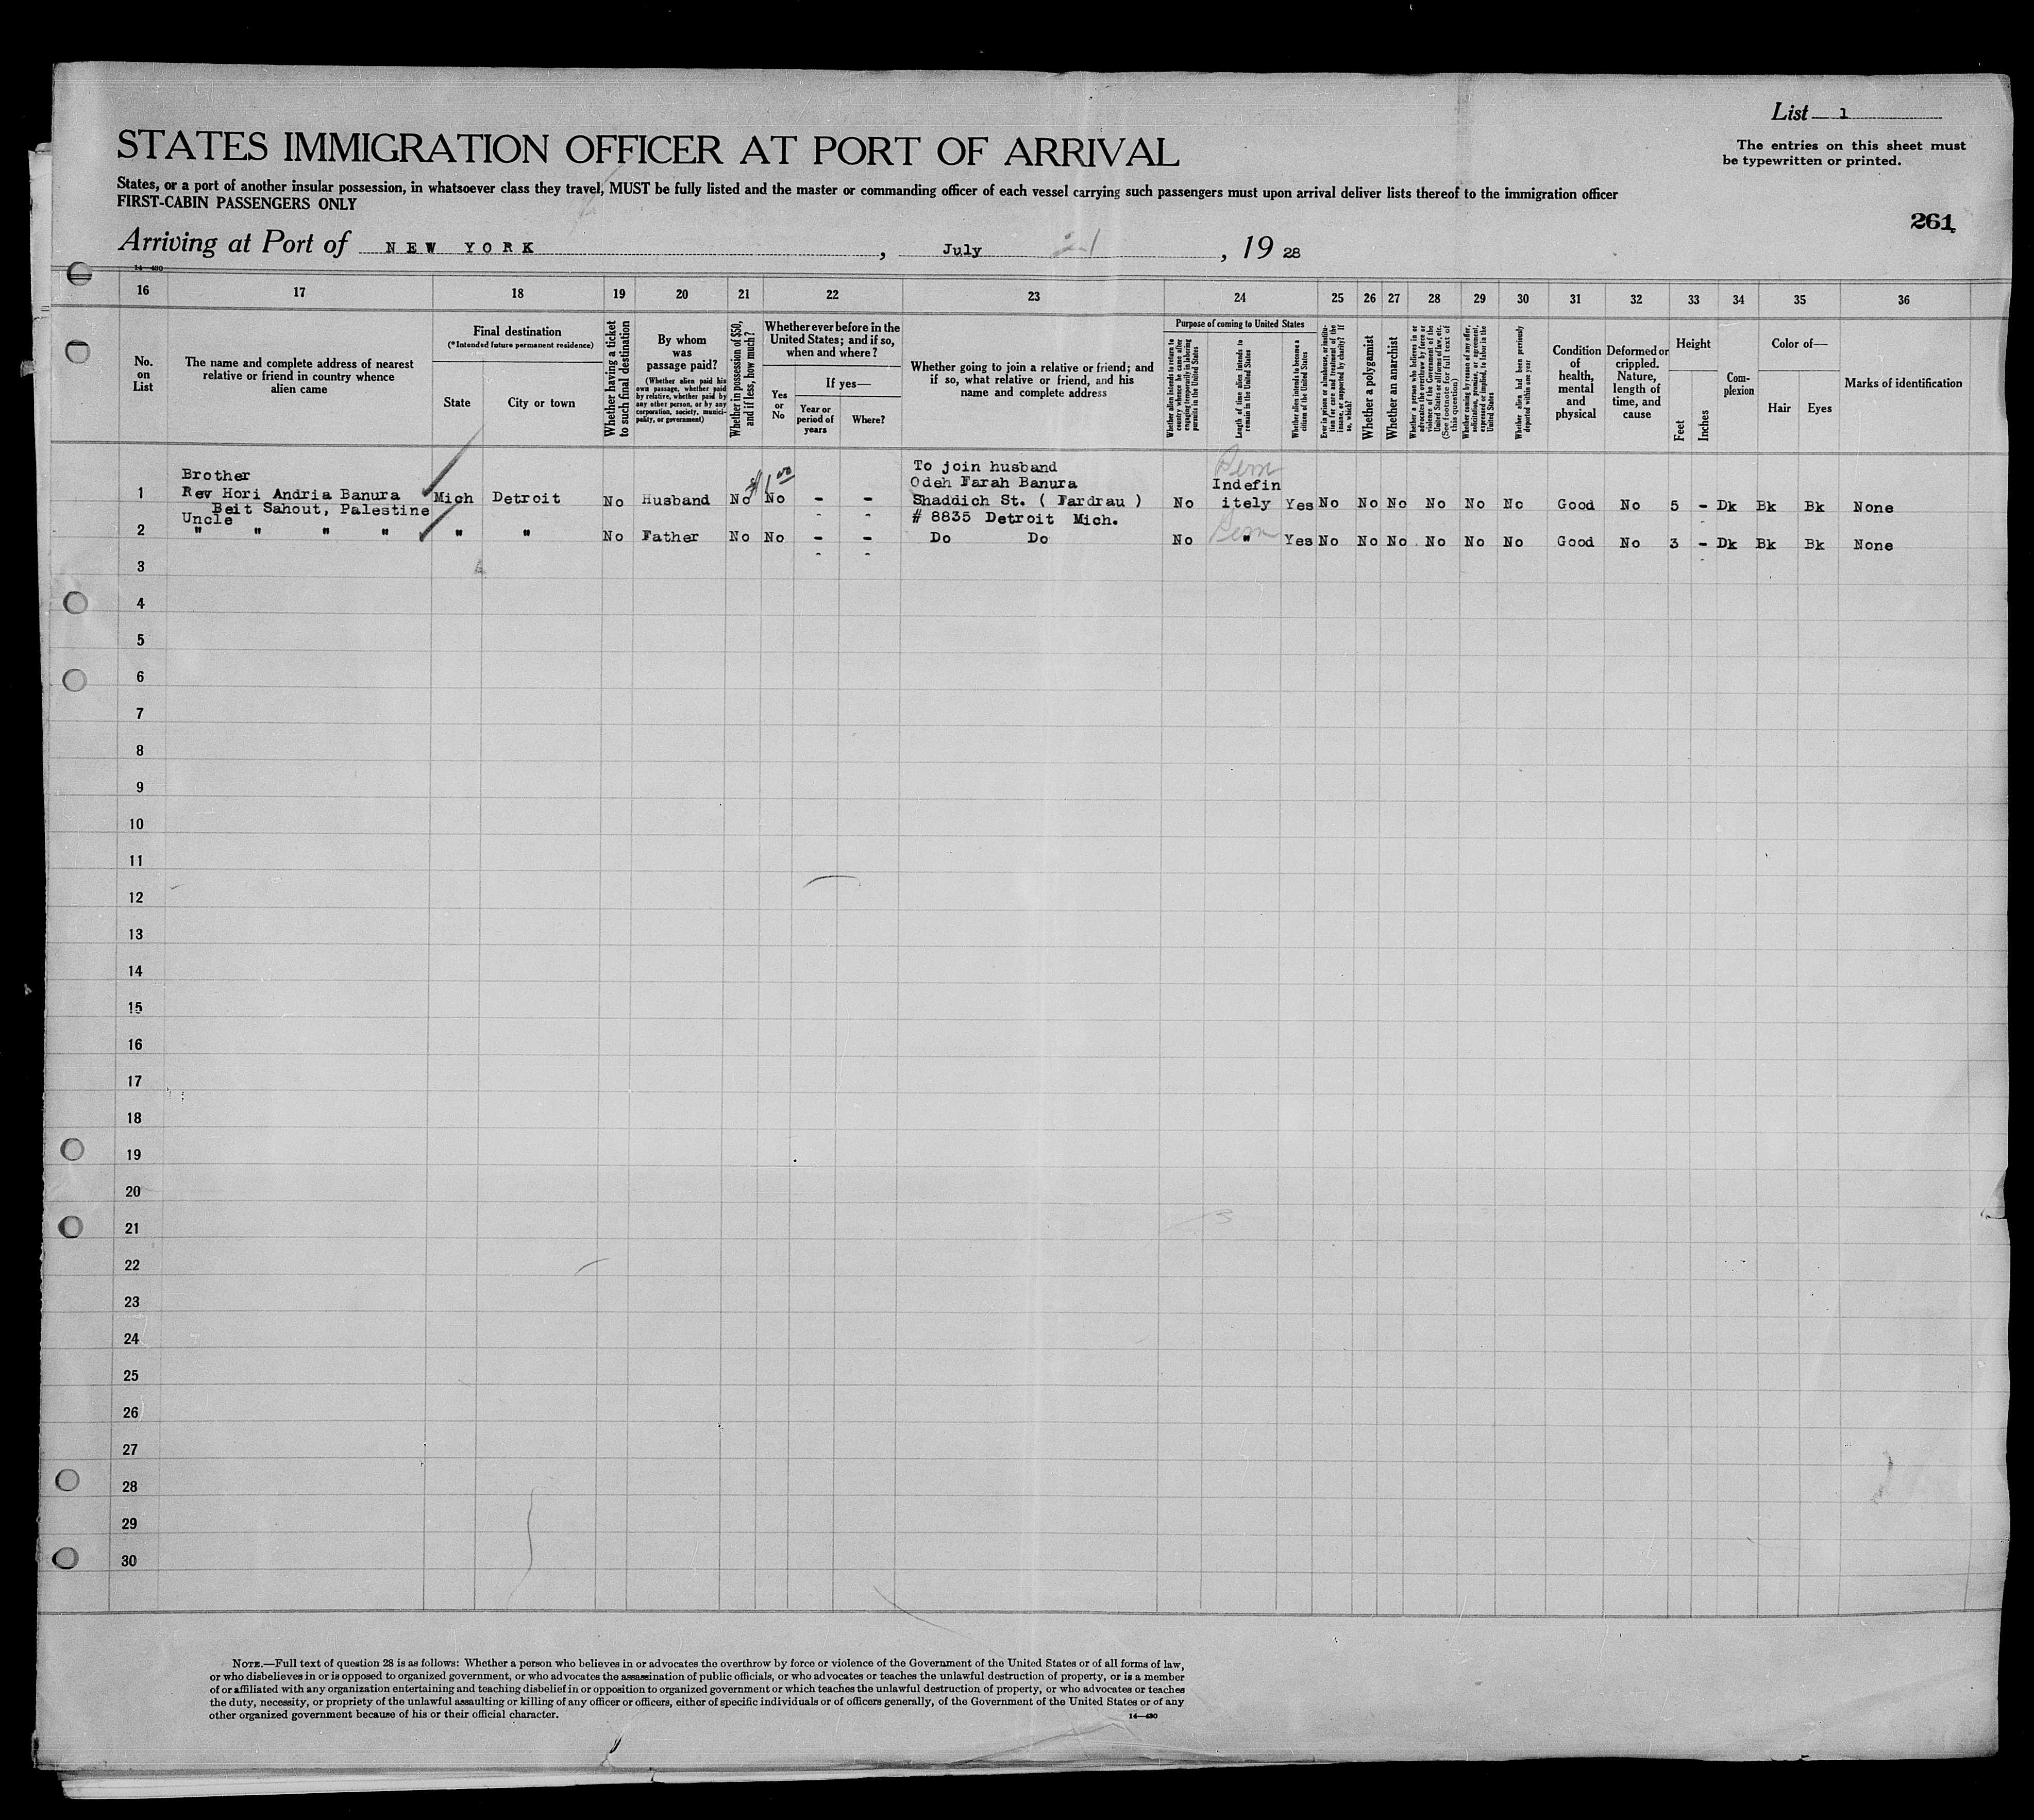 List 1
The entries on this sheet must
be typewritten or printed.
STATES IMMIGRATION OFFICER AT PORT OF ARRIVAL
States, or a port of another insular possession, in whatsoever class they travel, MUST be fully listed and the master or commanding officer of each vessel carrying such passengers must upon arrival deliver lists thereof to the immigration officer
FIRST-CABIN PASSENGERS ONLY
261
Arriving at Port of NEW YORK, July 21, 19 28
14-430
16 17 18 19 20 21 22 23 24 25 26 27 28 29 30 31 32 33 34 35 36
No.
on
List
The name and complete address of nearest
relative or friend in country whence
alien came
Final destination
(*Intended future permanent residence)
State
City or town
Whether having a ticket
to such final destination
By whom
was
passage paid?
(Whether alien paid his
own passage, whether paid
by relative, whether paid by
any other person, or by any
corporation, society, munici-
pality, or government)
Whether in possession of $50,
and if less, how much?
Whether ever before in the
United States; and if so,
when and where?
Yes
or
No
If yes—
Year or
period of
years
Where?
Whether going to join a relative or friend; and
if so, what relative or friend, and his
name and complete address
Purpose of coming to United States
Whether alien intends to return to
country whence he came after
engaging temporarily in laboring
pursuits in the United States
Length of time alien intends to
remain in the United States
Whether alien intends to become a
citizen of the United States
Ever in prison or almshouse, or institu-
tion for care and treatment of the
insane, or supported by charity? If
so, which?
Whether a polygamist
Whether an anarchist
Whether a person who believes in or
advocates the overthrow by force or
violence of the Government of the
United States or all forms of law, etc.
(See footnote for full text of
this question)
Whether coming by reason of any offer,
solicitation, promise, or agreement,
expressed or implied, to labor in the
United States
Whether alien had been previously
deported within one year
Condition
of
health,
mental
and
physical
Deformed or
crippled.
Nature,
length of
time, and
cause
Height
Feet
Inches
Com-
plexion
Color of—
Hair
Eyes
Marks of identification
Brother
Rev Hori Andria Banura
Beit Sahout, Palestine
1 Mich Detroit No Husband No $1.00 No - -
To join husband
Odeh Farah Banura
Shaddich St. ( Fardrau )
# 8835 Detroit Mich.
No
Perm
Indefin
itely
Yes No No No No No No Good No 5 - Dk Bk Bk None
Uncle
2 " " " " " " No Father No No - - Do Do No Perm " Yes No No No No No No Good No 3 - Dk Bk Bk None
3
4
5
6
7
8
9
10
11
12
13
14
15
16
17
18
19
20
21
22
23
24
25
26
27
28
29
30
NOTE.—Full text of question 28 is as follows: Whether a person who believes in or advocates the overthrow by force or violence of the Government of the United States or of all forms of law,
or who disbelieves in or is opposed to organized government, or who advocates the assassination of public officials, or who advocates or teaches the unlawful destruction of property, or is a member
of or affiliated with any organization entertaining and teaching disbelief in or opposition to organized government or which teaches the unlawful destruction of property, or who advocates or teaches
the duty, necessity, or propriety of the unlawful assaulting or killing of any officer or officers, either of specific individuals or of officers generally, of the Government of the United States or of any
other organized government because of his or their official character.
14-430